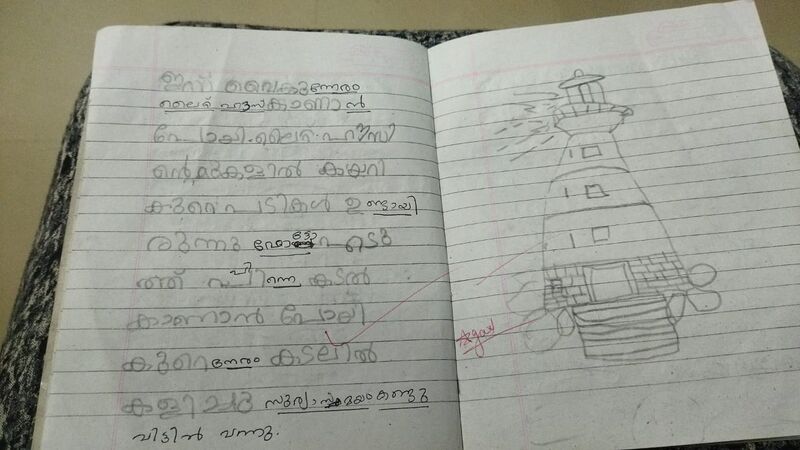 ഇന്ന് വൈകുന്നേരം
ലൈറ്റ് ഹൗസ് കാണാൻ
പോയി. ലൈറ്റ് ഹൗസി
ന്റെ മുകളിൽ കയറി
കുറെ പടികൾ ഉണ്ടായി
രുന്നു ഫോട്ടോ എടു
ത്ത് പിന്നെ കടൽ
കാണാൻ പോയി
കുറെ നേരം കടലിൽ
കളിച്ചു സൂര്യാസ്തമയം കണ്ടു
വീട്ടിൽ വന്നു.
good